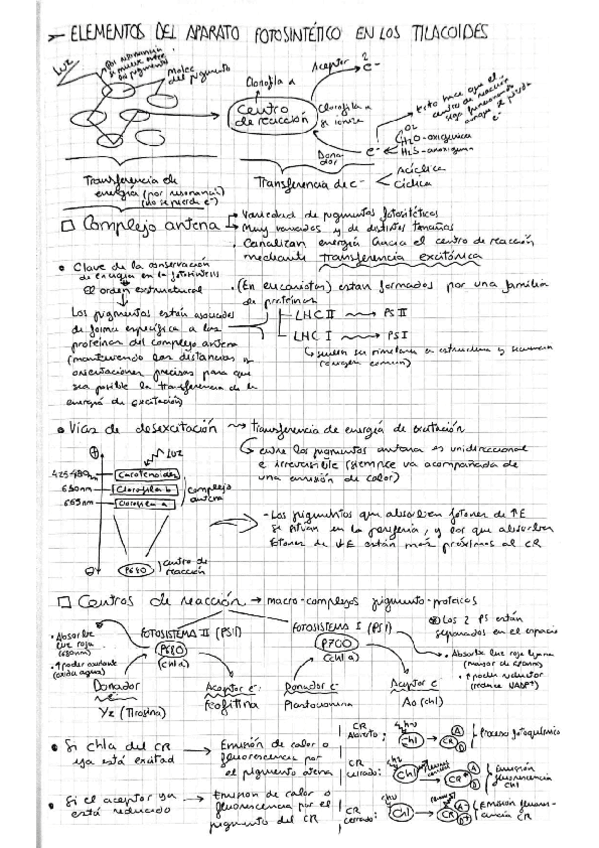 ELEMENTOS DEL APARATO FOTOSINTÉTICO EN LOS TILACOIDES
LUZ
por resonancia
se mueve entre
los pigmentos
Molec
del pigmento
Clorofila a
Centro
de reacción
Aceptor
2
e-
Clorofila a
se ioniza
Dona-
dor
e-
Esto hace que el
centro de reacción
siga funcionando
aunque se pierda
e-
O2
H2O - oxigénica
H2S - anoxigénica
Transferencia de
energía (por resonancia)
(no se pierde e-)
Transferencia de e-
Acíclica
Cíclica
Complejo antena
Variedad de pigmentos fotosintéticos
Muy variados y de distintos tamaños
Canalizan energía hacia el centro de reacción
mediante transferencia excitónica
Clave de la conservación
de energía en la fotosíntesis
El orden estructural
Los pigmentos están asociados
de forma específica a las
proteínas del complejo antena
(manteniendo las distancias y
orientaciones precisas para que
sea posible la transferencia de la
energía de excitación)
(En eucariotas) están formados por una familia
de proteínas
LHC II PS II
LHC I PS I
suelen ser similares en estructura y secuencia
(origen común)
Vías de desexcitación transferencia de energía de excitación
entre los pigmentos antena es unidireccional
e irreversible (siempre va acompañada de
una emisión de calor)
Luz
425-490nm Carotenoides
650nm Clorofila b
665nm Clorofila a
complejo
antena
P680
centro de
reacción
- Los pigmentos que absorben fotones de ↑E
se sitúan en la periferia, y los que absorben
fotones de ↓E están más próximos al CR
Centros de reacción → macro-complejos pigmento-proteicos
FOTOSISTEMA II (PSII)
P680
(chl a)
FOTOSISTEMA I (PSI)
P700
(chl a)
Los 2 PS están
separados en el espacio
Absorbe
luz roja
(680nm)
↑poder oxidante
(oxida agua)
Absorbe luz roja lejana
↑ poder reductor
Donador
Yz (Tirosina)
Aceptor e-:
Feofitina
Donador e-
Plastocianina
Aceptor e-
Ao (chl)
Si chla del CR
ya está excitad
Emisión de calor o
fluorescencia por
el pigmento antena
Si el aceptor ya
está reducido
Emisión de calor o
fluorescencia por el
pigmento del CR
CR
Abierto:
hν
Chl
CR
A
D
Proceso fotoquímico
CR
cerrado:
hν
Chl
CR*
A
D
Emisión
fluorescencia
Chl
CR
cerrado:
hν
Chl
CR
A-
D+
Emisión fluores-
cencia CR